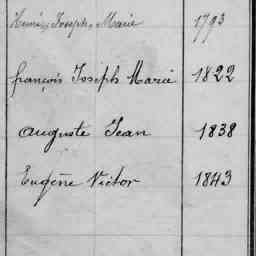 Henri Joseph Marie 1793
françois Joseph Marie 1822
Auguste Jean 1838
Eugène Victor 1843